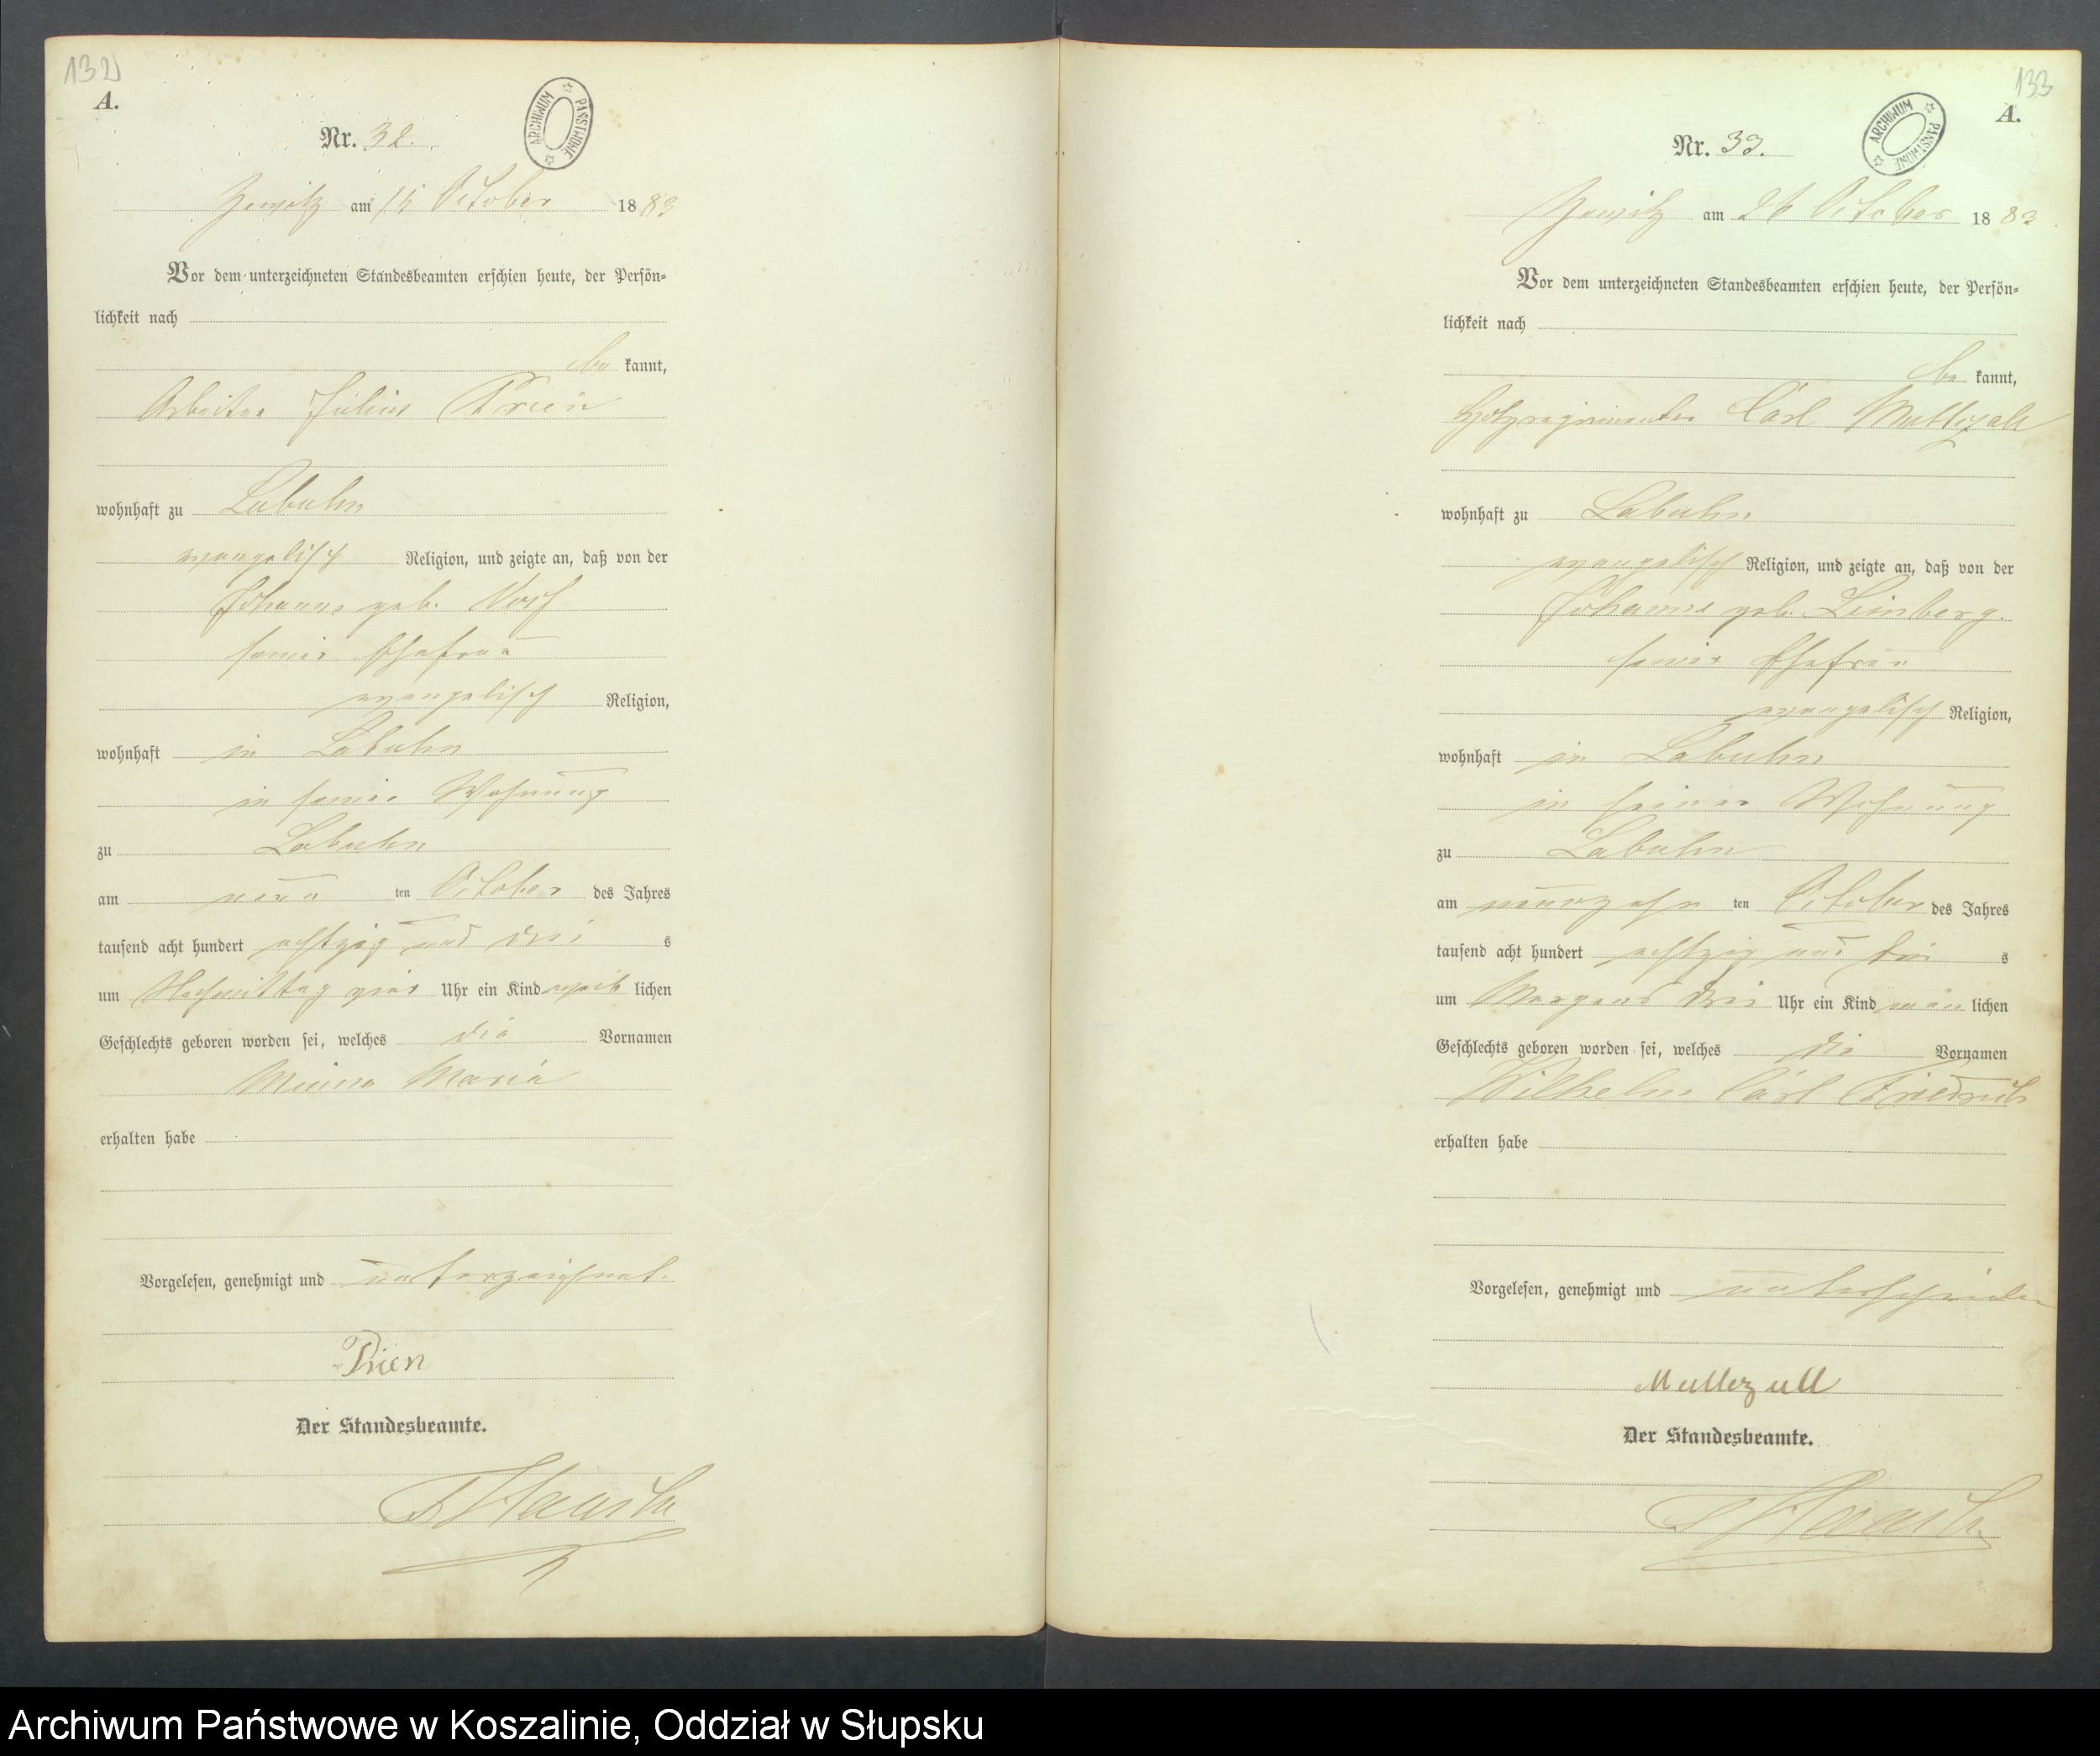 132
A.
ARCHIWUM PAŃSTWOWE
Nr. 32.
am 15 October 1883
Vor dem unterzeichneten Standesbeamten erschien heute, der Persön-
lichkeit nach
be kannt,
Arbeiter Julius Prien
wohnhaft zu Labuhn
evangelisch Religion, und zeigte an, daß von der
Johanne geb.
seiner Ehefrau
evangelisch Religion,
wohnhaft in Labuhn
in seiner Wohnung
zu Labuhn
am neun ten October des Jahres
tausend acht hundert achtzig und drei s
um Nachmittag vier Uhr ein Kind weib lichen
Geschlechts geboren worden sei, welches die Vornamen
Minna Maria
erhalten habe
Vorgelesen, genehmigt und unterzeichnet.
Prien
Der Standesbeamte.
133
A.
ARCHIWUM PAŃSTWOWE
Nr. 33.
am 26 October 1883
Vor dem unterzeichneten Standesbeamten erschien heute, der Persön-
lichkeit nach
be kannt,
Carl
wohnhaft zu Labuhn
evangelisch Religion, und zeigte an, daß von der
Johanne geb. Limberg.
seiner Ehefrau
evangelisch Religion,
wohnhaft in Labuhn
in seiner Wohnung
zu Labuhn
am neunzehn ten October des Jahres
tausend acht hundert achtzig und drei s
um Morgens drei Uhr ein Kind män lichen
Geschlechts geboren worden sei, welches die Vornamen
Wilhelm Carl Friedrich
erhalten habe
Vorgelesen, genehmigt und
Mullezull
Der Standesbeamte.
Archiwum Państwowe w Koszalinie, Oddział w Słupsku